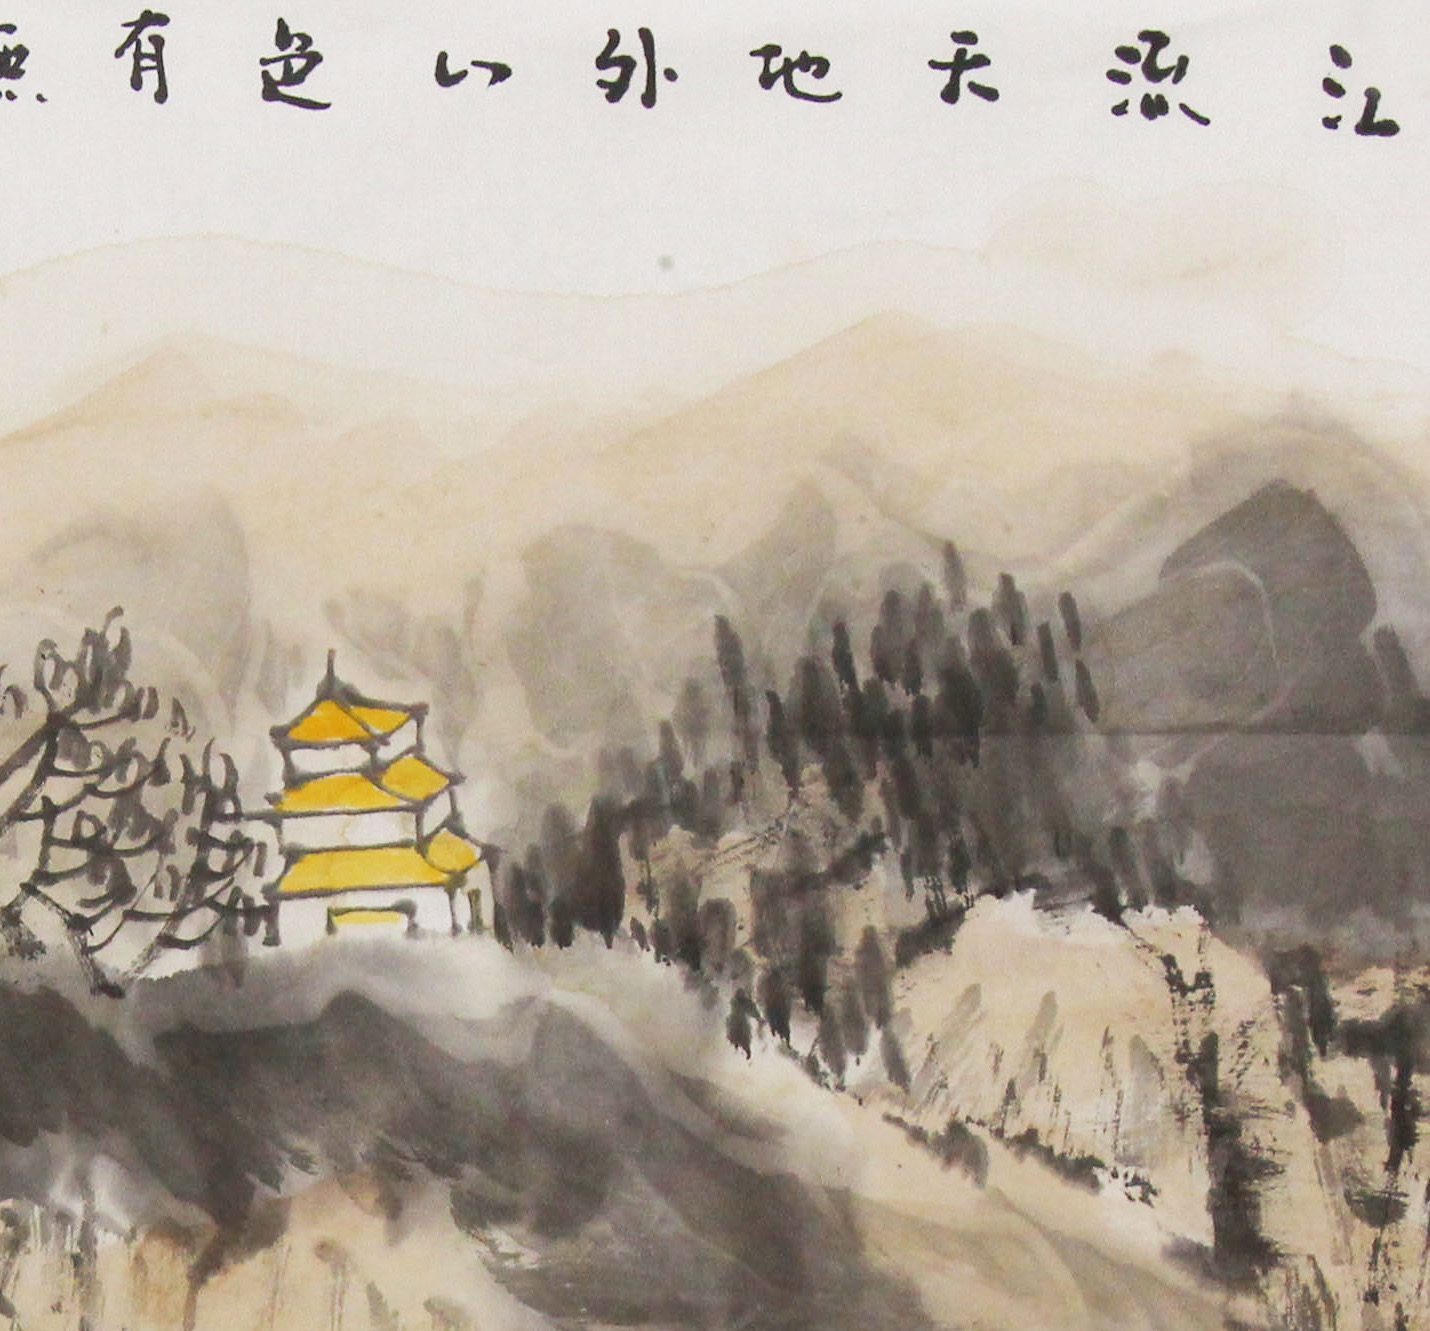 江流天地外山色有無